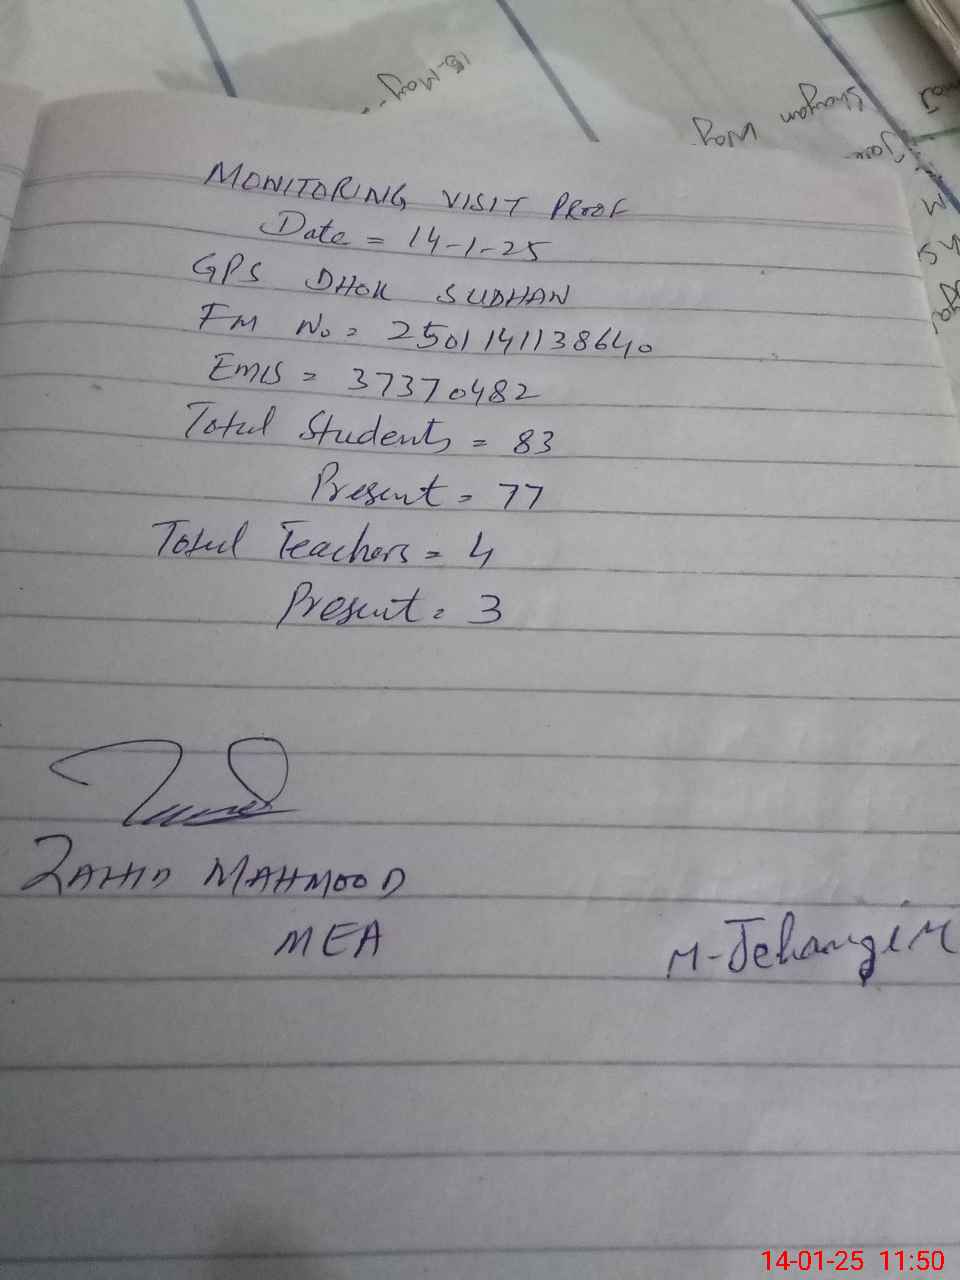 18-May-
Shayan May
MONITORING VISIT PROOF
Date = 14-1-25
GPS DHOK SUDHAN
FM No = 2501141138640
EMIS = 37370482
Total Students = 83
Present = 77
Total Teachers = 4
Present = 3
ZAHID MAHMOOD
MEA
M-Jehangir
14-01-25 11:50